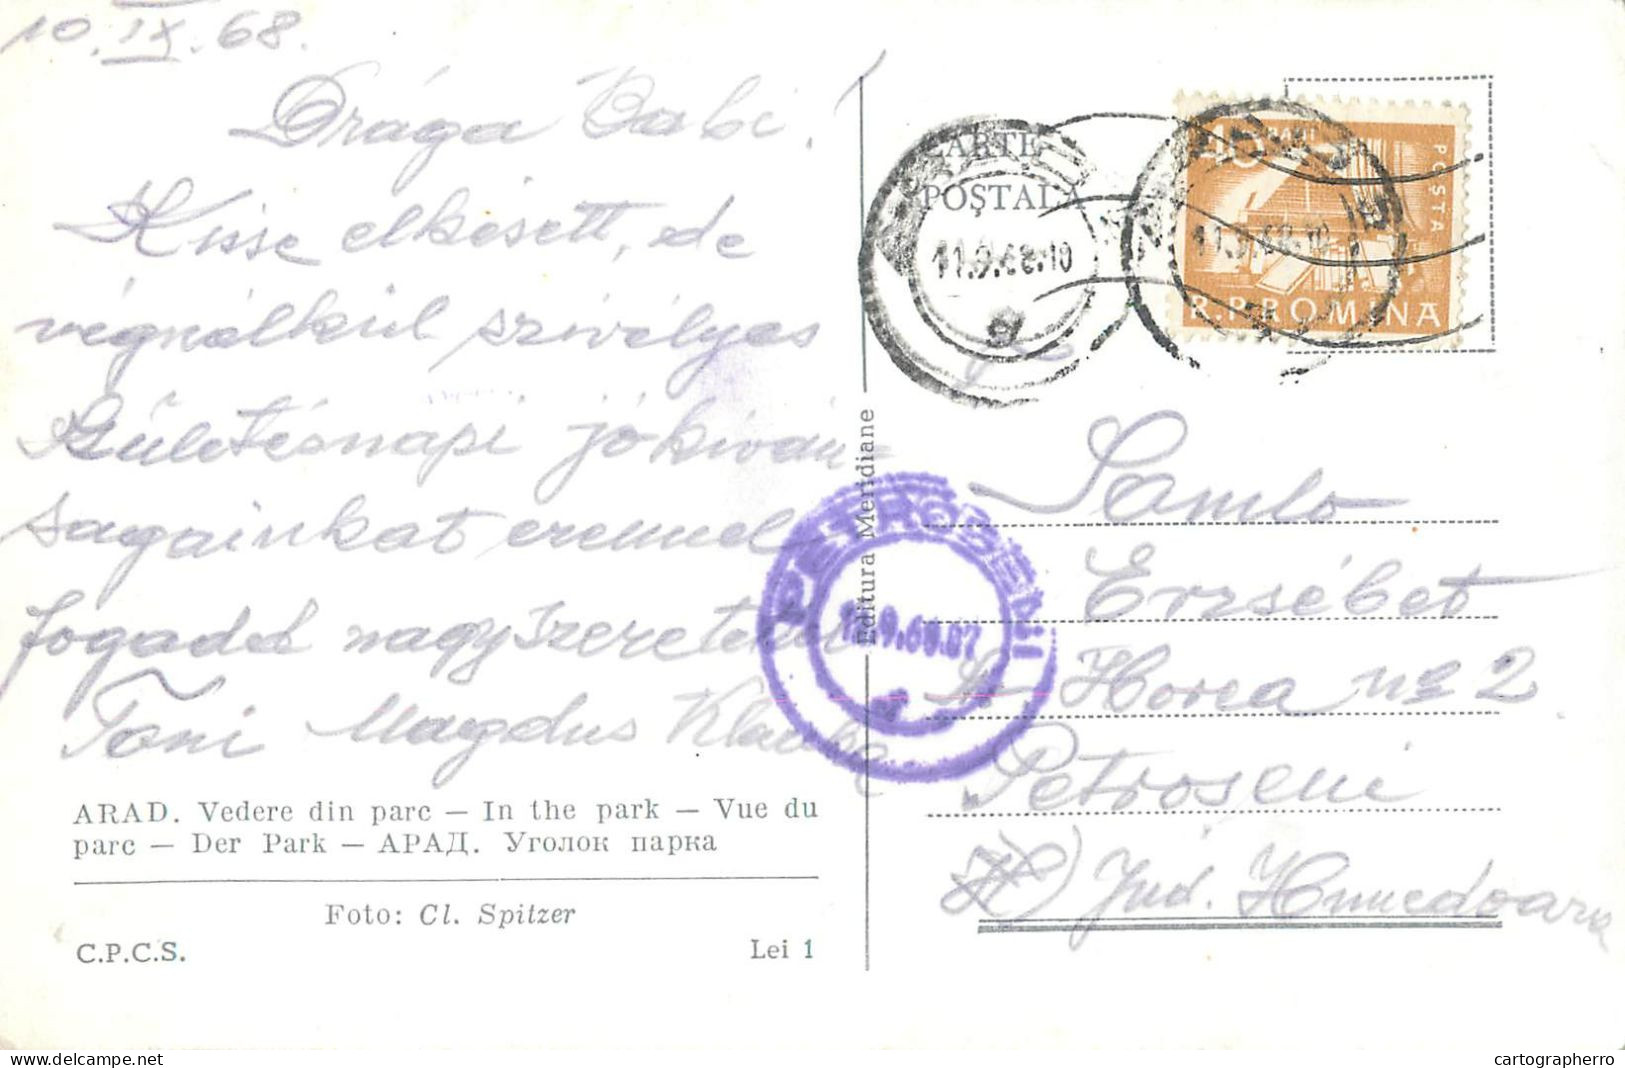 10. IX. 68.
Drága Babi!
Kisse elkésett, de
végnélkül szivélyes
Születésnapi jókiván-
sagainkat ezennel
fogadd nagy szeretettel
Toni Magdus Klauka
ARAD. Vedere din parc — In the park — Vue du
parc — Der Park — АРАД. Уголок парка
Foto: Cl. Spitzer
C.P.C.S.
Lei 1
Editura Meridiane
CARTE
POȘTALĂ
11.9.68.10
11.9.68.10
40 BANI
POȘTA
R.P.ROMINA
PETROȘENI
12.9.68.07
Samlo
Erzsébet
Horea no 2
Petroseni
Jud. Hunedoara
delcampe.net
cartographerro